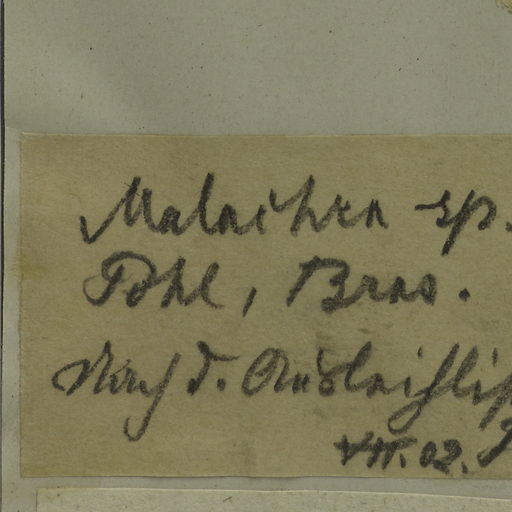 Malachra sp.
Pohl, Bras.
Nach d.
VII. 02.